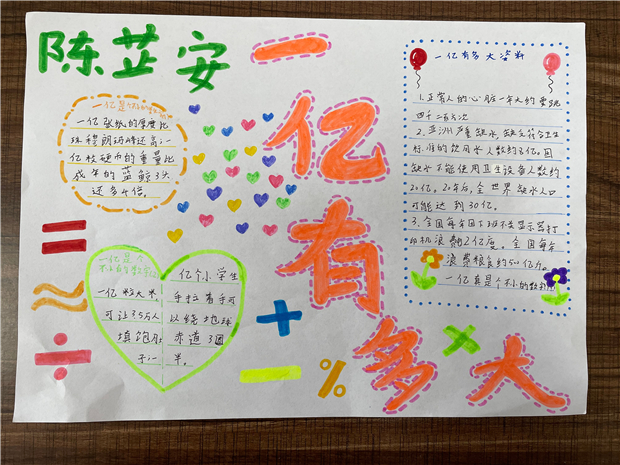 陈芷安
一亿有多大
一亿是个
一亿张纸的厚度比
珠穆朗玛峰还高;一
亿枚硬币的重量比
成年的蓝鲸3头
还多4倍。
一亿是个
不小的数
一亿粒大米,
可让35万人
填饱肚
子;一
亿个小学生
手拉着手可
以绕地球
赤道3圈
半。
一亿有多大资料
1.正常人的心脏一年大约要跳
四千二百万次
2.亚洲严重缺水,缺乏符合卫生
标准的饮用水人数约8亿。因
缺水不能使用卫生设备人数约
20亿。20年后,全世界缺水人口
可能达到30亿。
3.全国每年因下班不关显示器打
印机浪费12亿度。全国每年
浪费粮食约50亿斤。
一亿真是个不小的数
= ≈ ÷ + − % ×